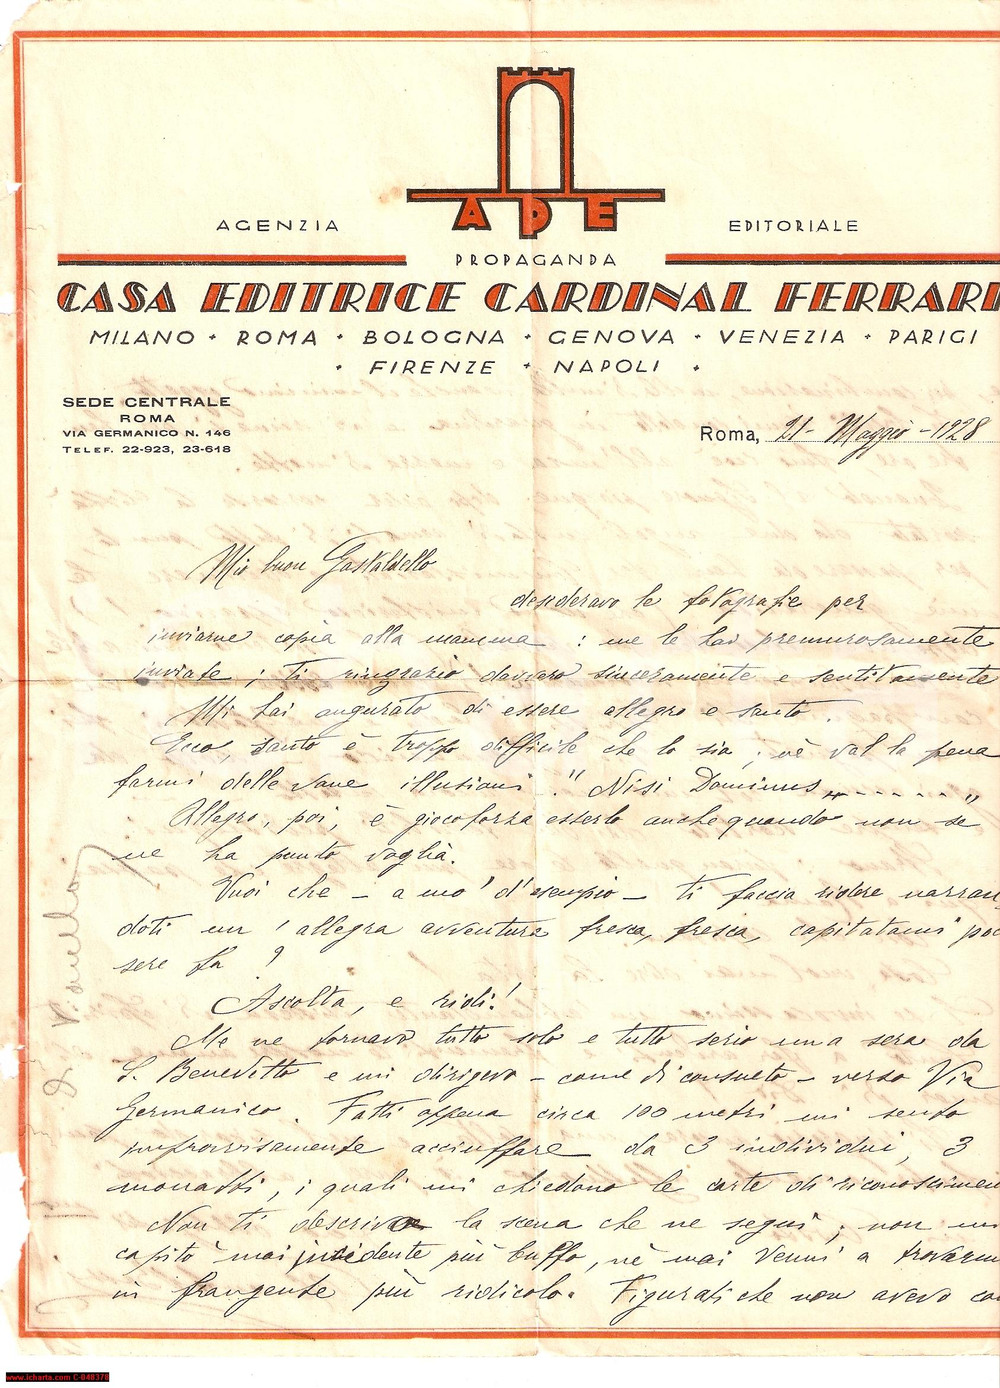 APE
AGENZIA EDITORIALE
PROPAGANDA
CASA EDITRICE CARDINAL FERRARI
MILANO + ROMA + BOLOGNA + GENOVA + VENEZIA + PARIGI
+ FIRENZE + NAPOLI +
SEDE CENTRALE
ROMA
VIA GERMANICO N. 146
TELEF. 22-923, 23-618
Roma, 21 - Maggio - 1928
Mio buon Gastaldello
desideravo le fotografie per
inviarne copia alla mamma : me le hai premurosamente
inviate ; ti ringrazio davvero sinceramente e sentitamente
Mi hai augurato di essere allegro e santo.
Ecco, santo è troppo difficile che lo sia ; nè val la pena
farmi delle vane illusioni. "Nisi Dominus ......"
Allegro, poi, è giocoforza esserlo anche quando non se
ne ha punto voglia.
Vuoi che - a mo' d'esempio - ti faccia ridere narran
doti un' allegra avventura fresca, fresca, capitatami poc
sere fa ?
Ascolta, e ridi!
Me ne tornavo tutto solo e tutto serio una sera da
S. Benedetto e mi dirigevo - come di consueto - verso Via
Germanico. Fatti appena circa 100 metri mi sento
improvvisamente acciuffare da 3 individui, 3
monatti, i quali mi chiedono le carte di riconoscimen
Non ti descrivo la scena che ne seguì ; non mi
capitò mai incidente più buffo, nè mai venni a trovarm
in frangente più ridicolo. Figurati che non avevo co
www.icharta.com C-048378